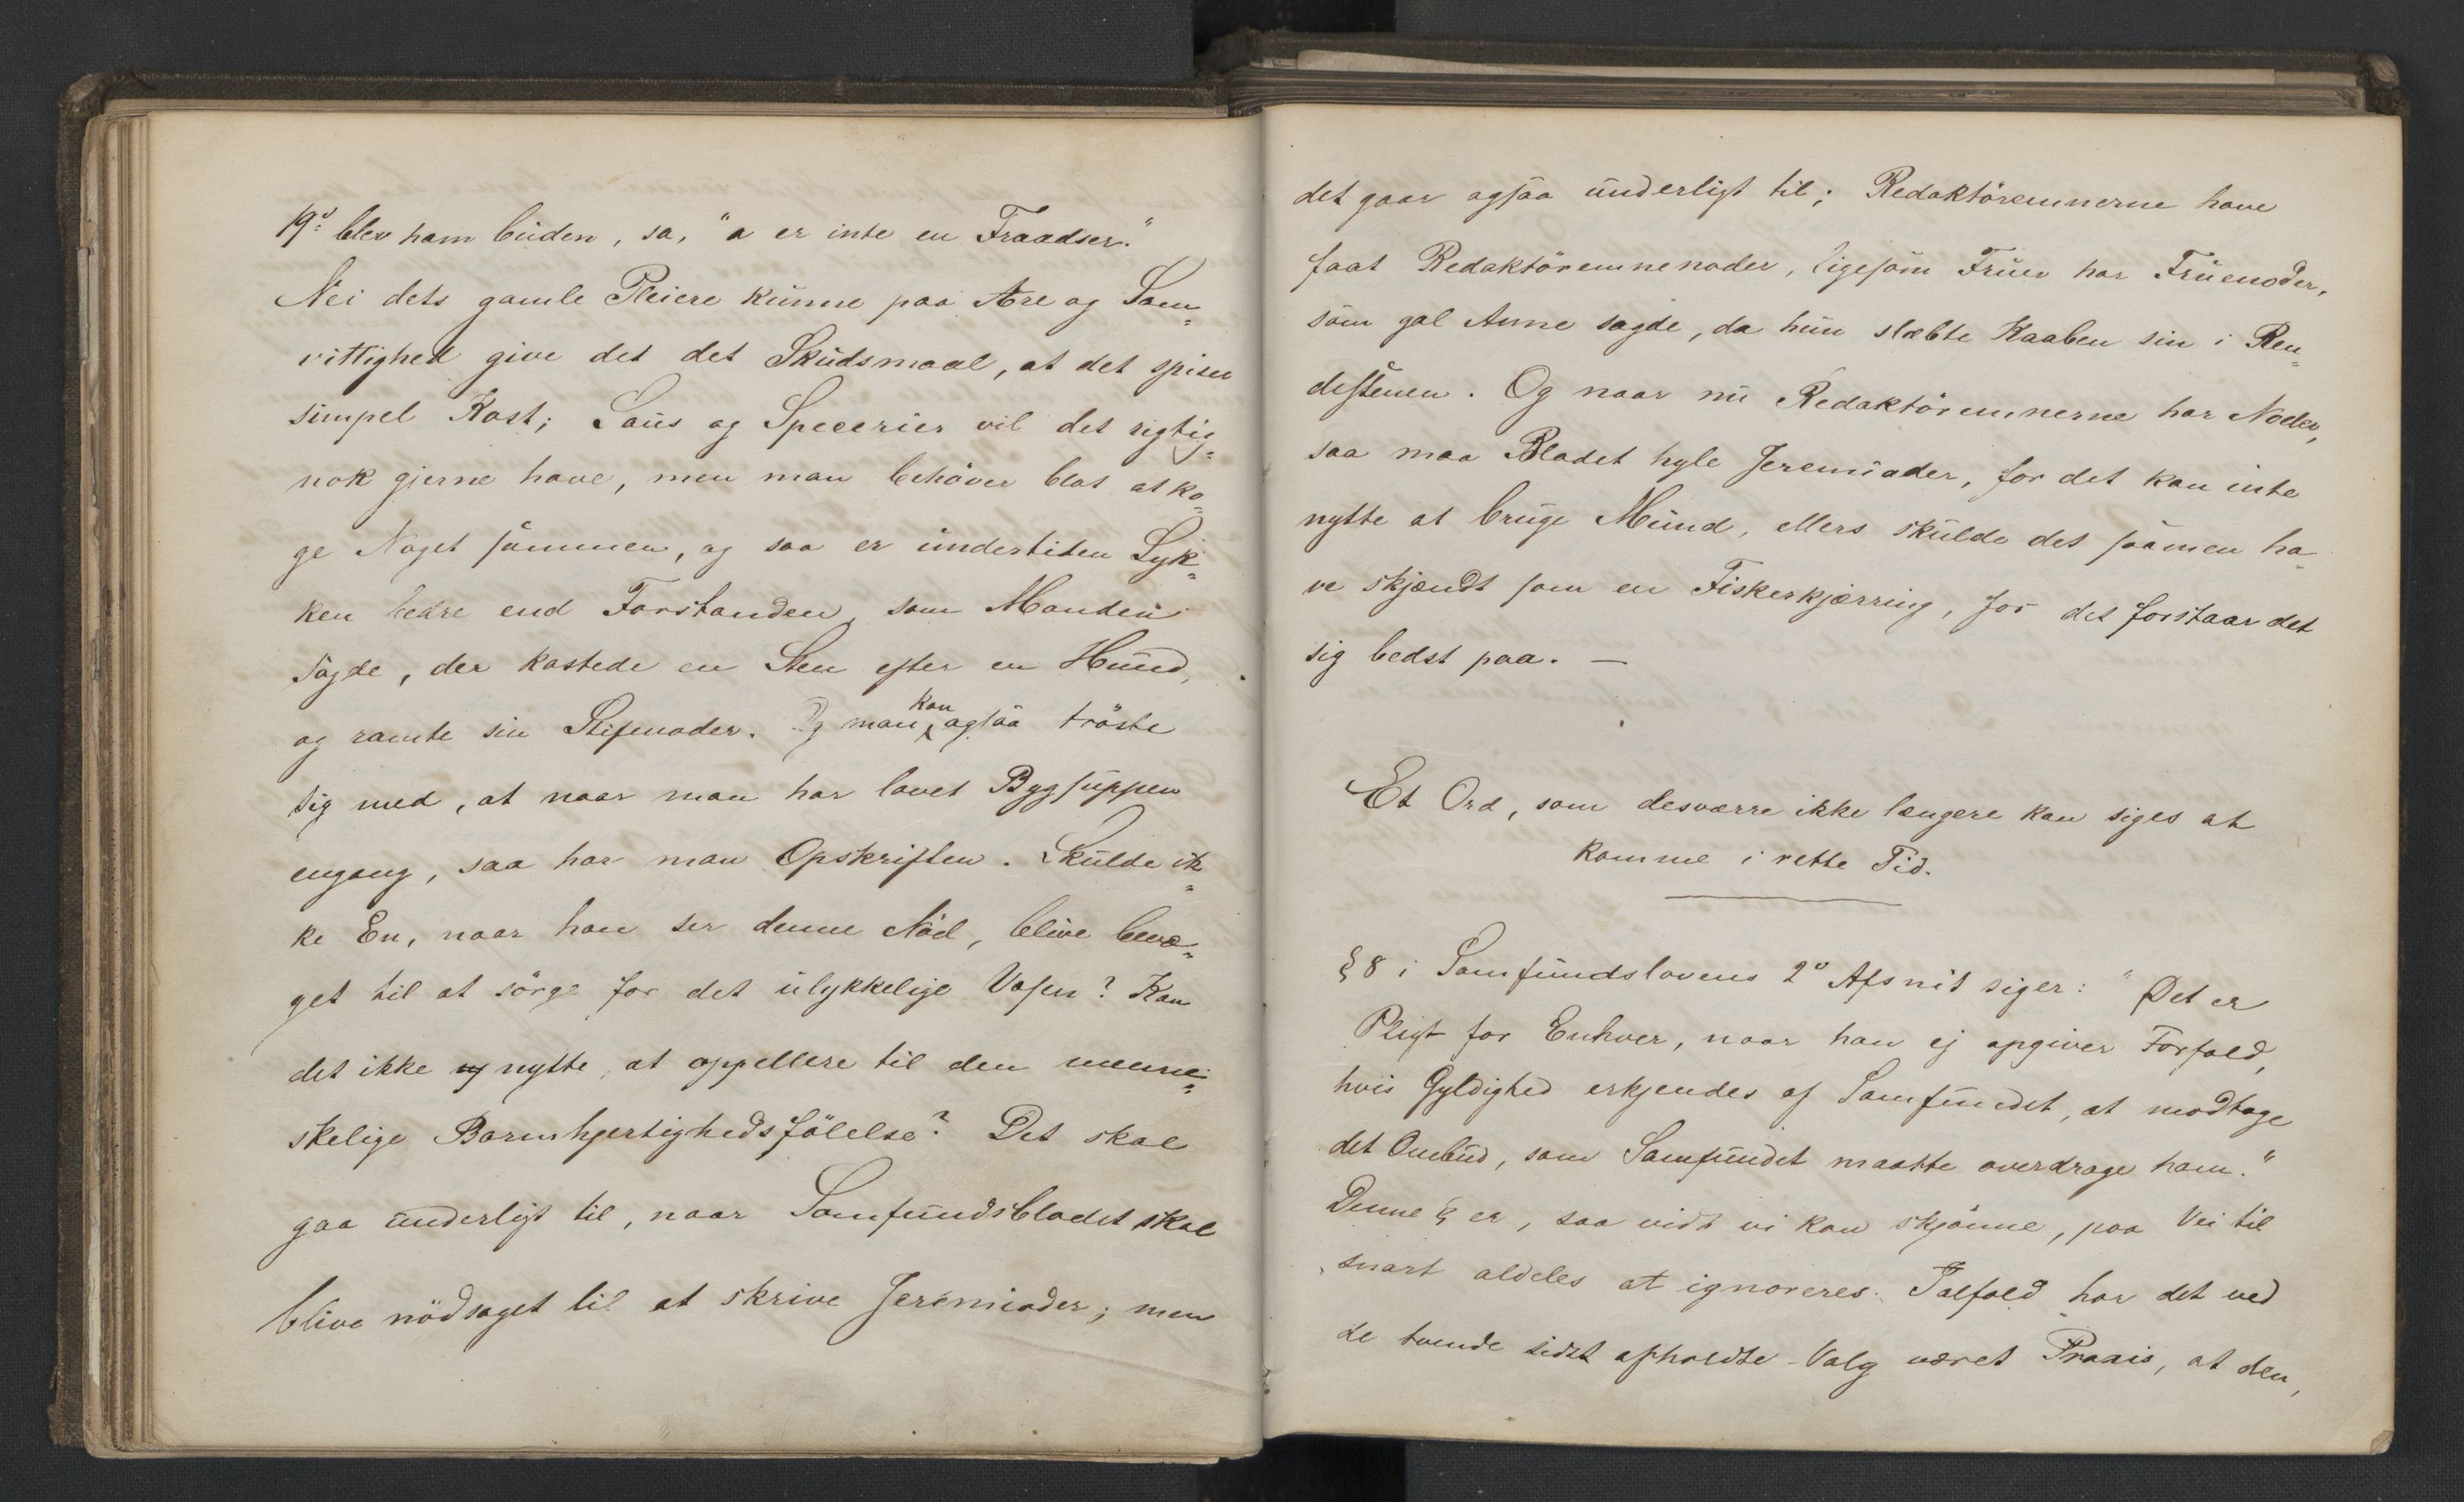 19º blev ham buden, sa, "a er inte en Fraadser."
Nei dets gamle Pleiere kunne paa Ære og Sam=
vittighed give det det Skudsmaal, at det spiser
simpel Kost; Saus og Specerier vil det rigtig=
nok gjerne have, men man behöver blot at ko=
ge Noget sammen, og saa er undertiden Lyk=
ken bedre end Forstanden, som Manden
sagde, der kastede en Sten efter en Hund,
og ramte sin Stifmoder. Og man kan ogsaa tröste
sig med, at naar man har lavet Bygsuppen
engang, saa har man Opskriften. Skulde ik=
ke En, naar han ser denne Nöd, blive bevæ=
get til at sörge for det ulykkelige Væsen? Kan
det ikke ny nytte, at appellere til den menne=
skelige Barmhjertighedsfölelse? Det skal
gaa underligt til, naar Samfundsbladet skal
blive nödsaget til at skrive Jeremiader; men
det gaar ogsaa underligt til; Redaktöremnerne have
faat Redaktöremnenoder, ligesom Fruer har Fruenoder,
som gal Anne sagde, da hun slæbte Kaaben sin i Ren=
destenen. Og naar nu Redaktöremnerne har Noder,
saa maa Bladet hyle Jeremiader, for det kan inte
nytte at bruge Mund, ellers skulde det saamen ha=
ve skjændt som en Fiskerkjærring, for det forstaar det
sig bedst paa. —
Et Ord, som desværre ikke længere kan siges at
komme i rette Tid.
§ 8 i Samfundslovens 2º Afsnit siger: "Det er
Pligt for Enhver, naar han ej opgiver Forfald,
hvis Gyldighed erkjendes af Samfundet, at modtage
det Ombud, som Samfundet maatte overdrage ham."
Denne § er, saa vidt vi kan skjönne, paa Vei til
snart aldeles at ignoreres. Ialfald har det ved
de tvende sidst afholdte Valg været Praxis, at den,